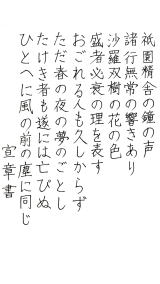 祇園精舎の鐘の声
諸行無常の響きあり
沙羅双樹の花の色
盛者必衰の理を表す
おごれる人も久しからず
ただ春の夜の夢のごとし
たけき者も遂には亡びぬ
ひとへに風の前の塵に同じ
宣章書